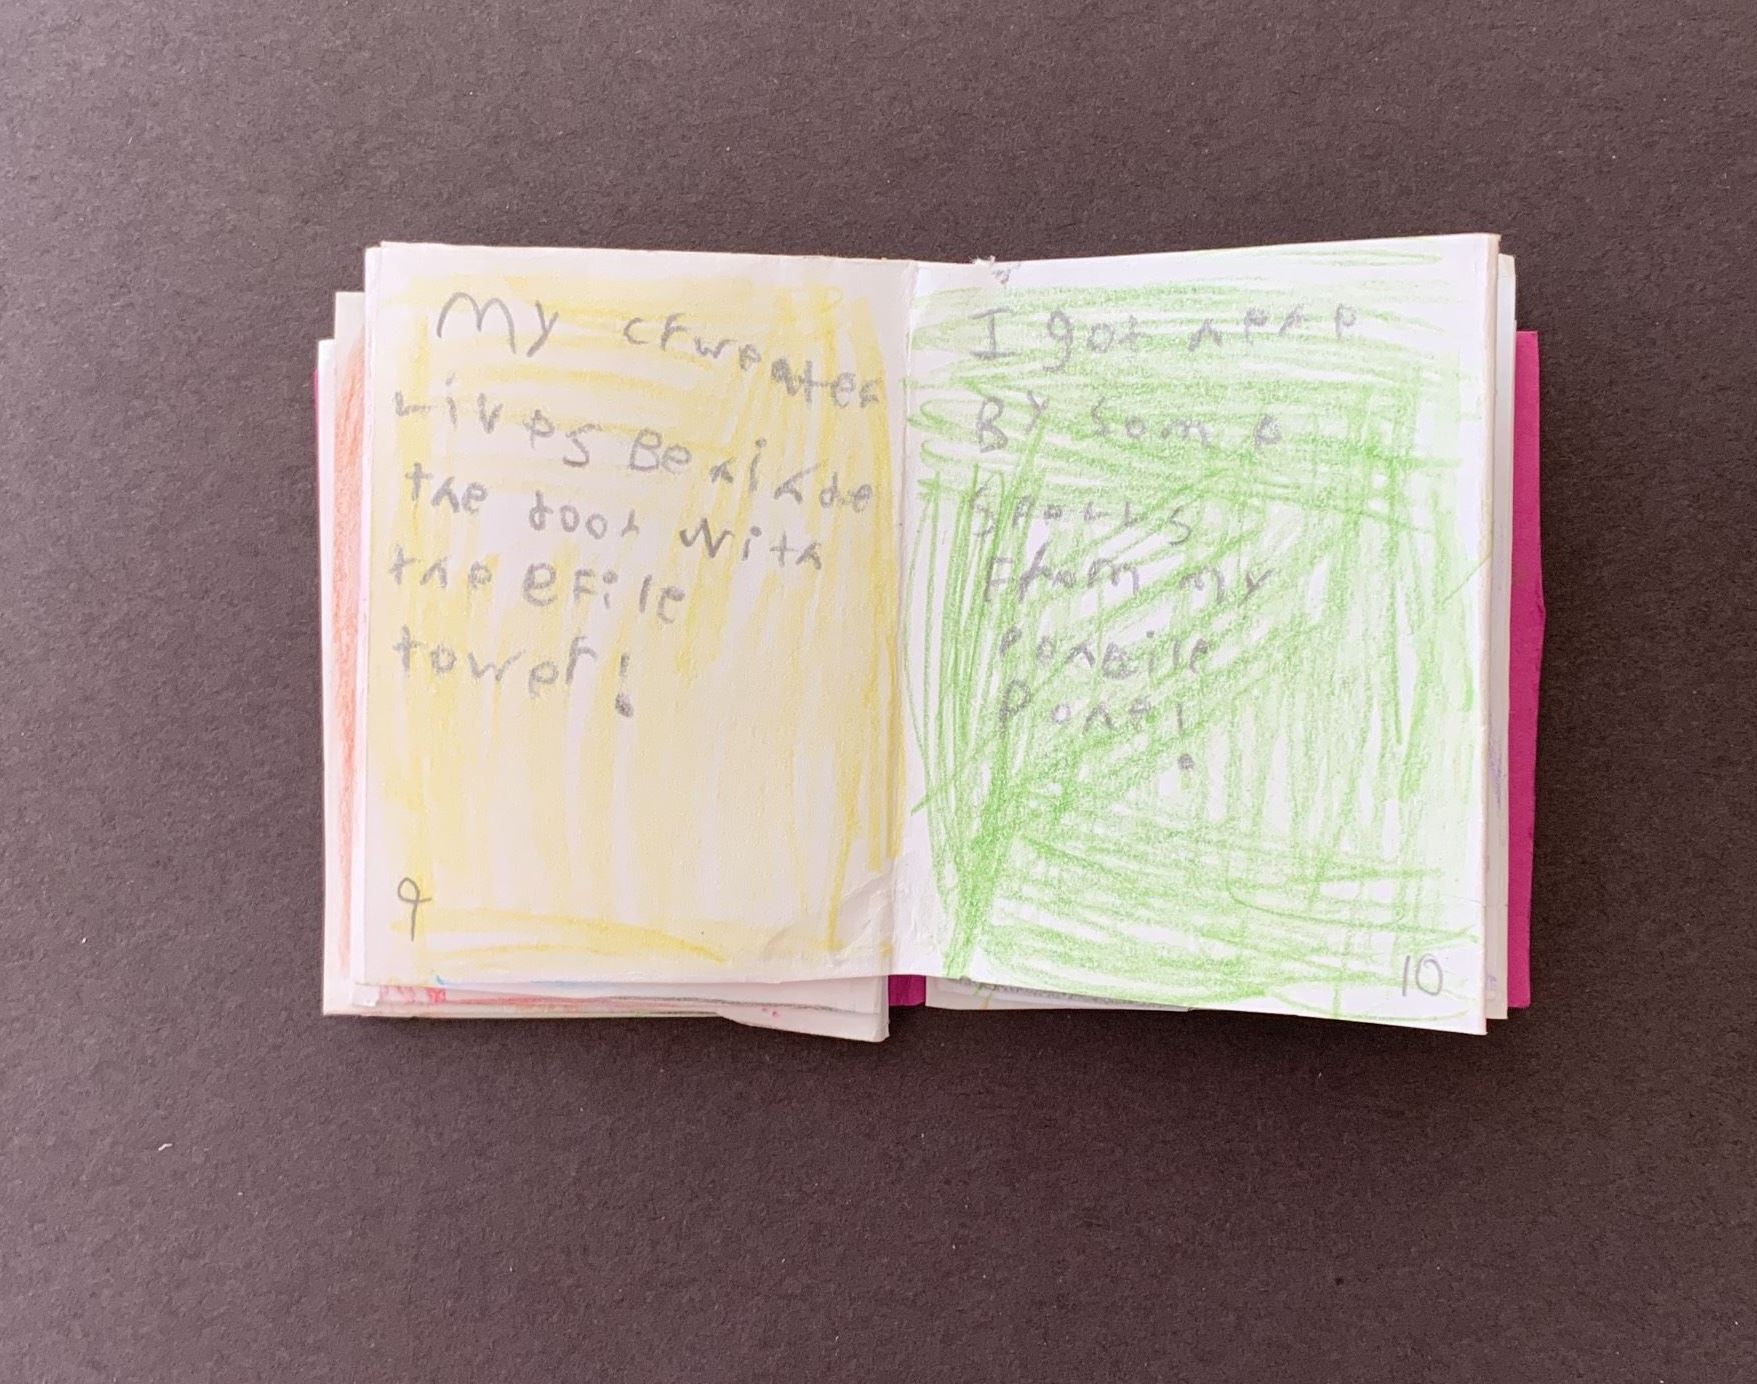 My crweater
Lives Behinde
the door with
the efile
tower!
9
I got here
By some
sparks
From my
Pontile
Pont!
10